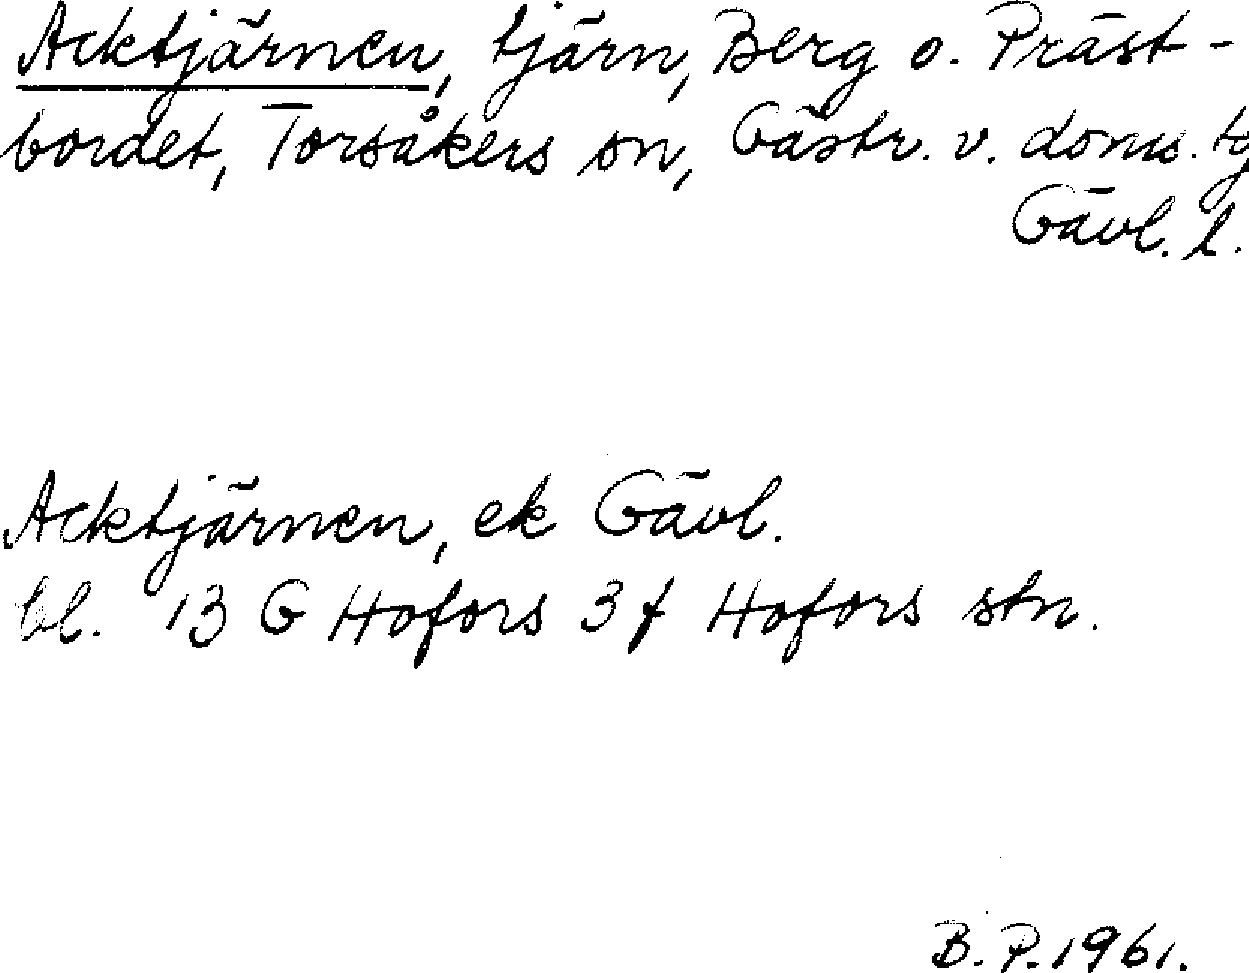 Acktjärnen, tjärn, Berg o. Präst-
bordet, Torsåkers sn, Gästr. v. doms. tg
Gävl. l.
Acktjärnen, ek Gävl.
bl. 13 G Hofors 3 f Hofors stn.
B. P. 1961.